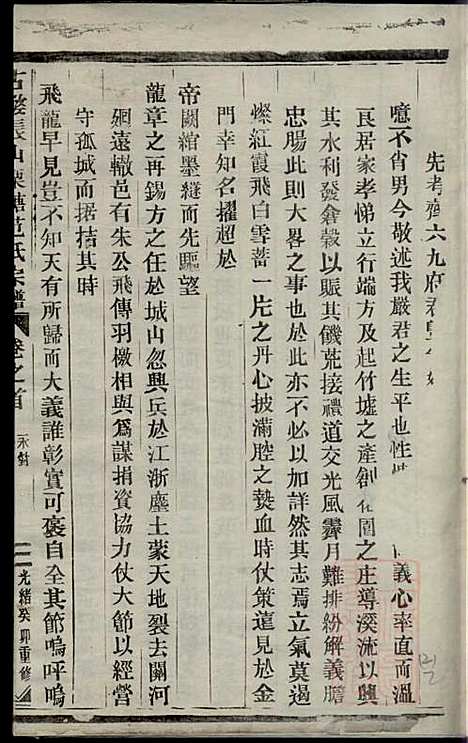 先考齊六九府君
噫不肖男今敬述我嚴君之生平也性 義心率直而溫
良居家孝悌立行端方及起竹墟之產創化園之庄導溪流以興
其水利發倉穀以賑其饑荒接禮道交光風霽月難排紛解義膽
忠腸此則大畧之事也於此亦不必以加詳然其志焉立氣莫遏
燦紅霞飛白雪蓄一片之丹心披滿腔之熱血時仗策蓬見於金
門幸知名擢超於
帝闕綰墨縫而先驅望
龍章之再錫方之任於城山忽興兵於江浙塵土蒙天地裂去關河
迥遠轍邑有朱公飛傳羽檄相與爲謀捐資協力仗大節以經營
守孤城而据拮其時
飛龍早見豈不知天有所歸而大義誰彰實可褒自全其節嗚呼嗚
山栗塘范氏宗譜 卷之首 永錫 二 光緒癸卯重修